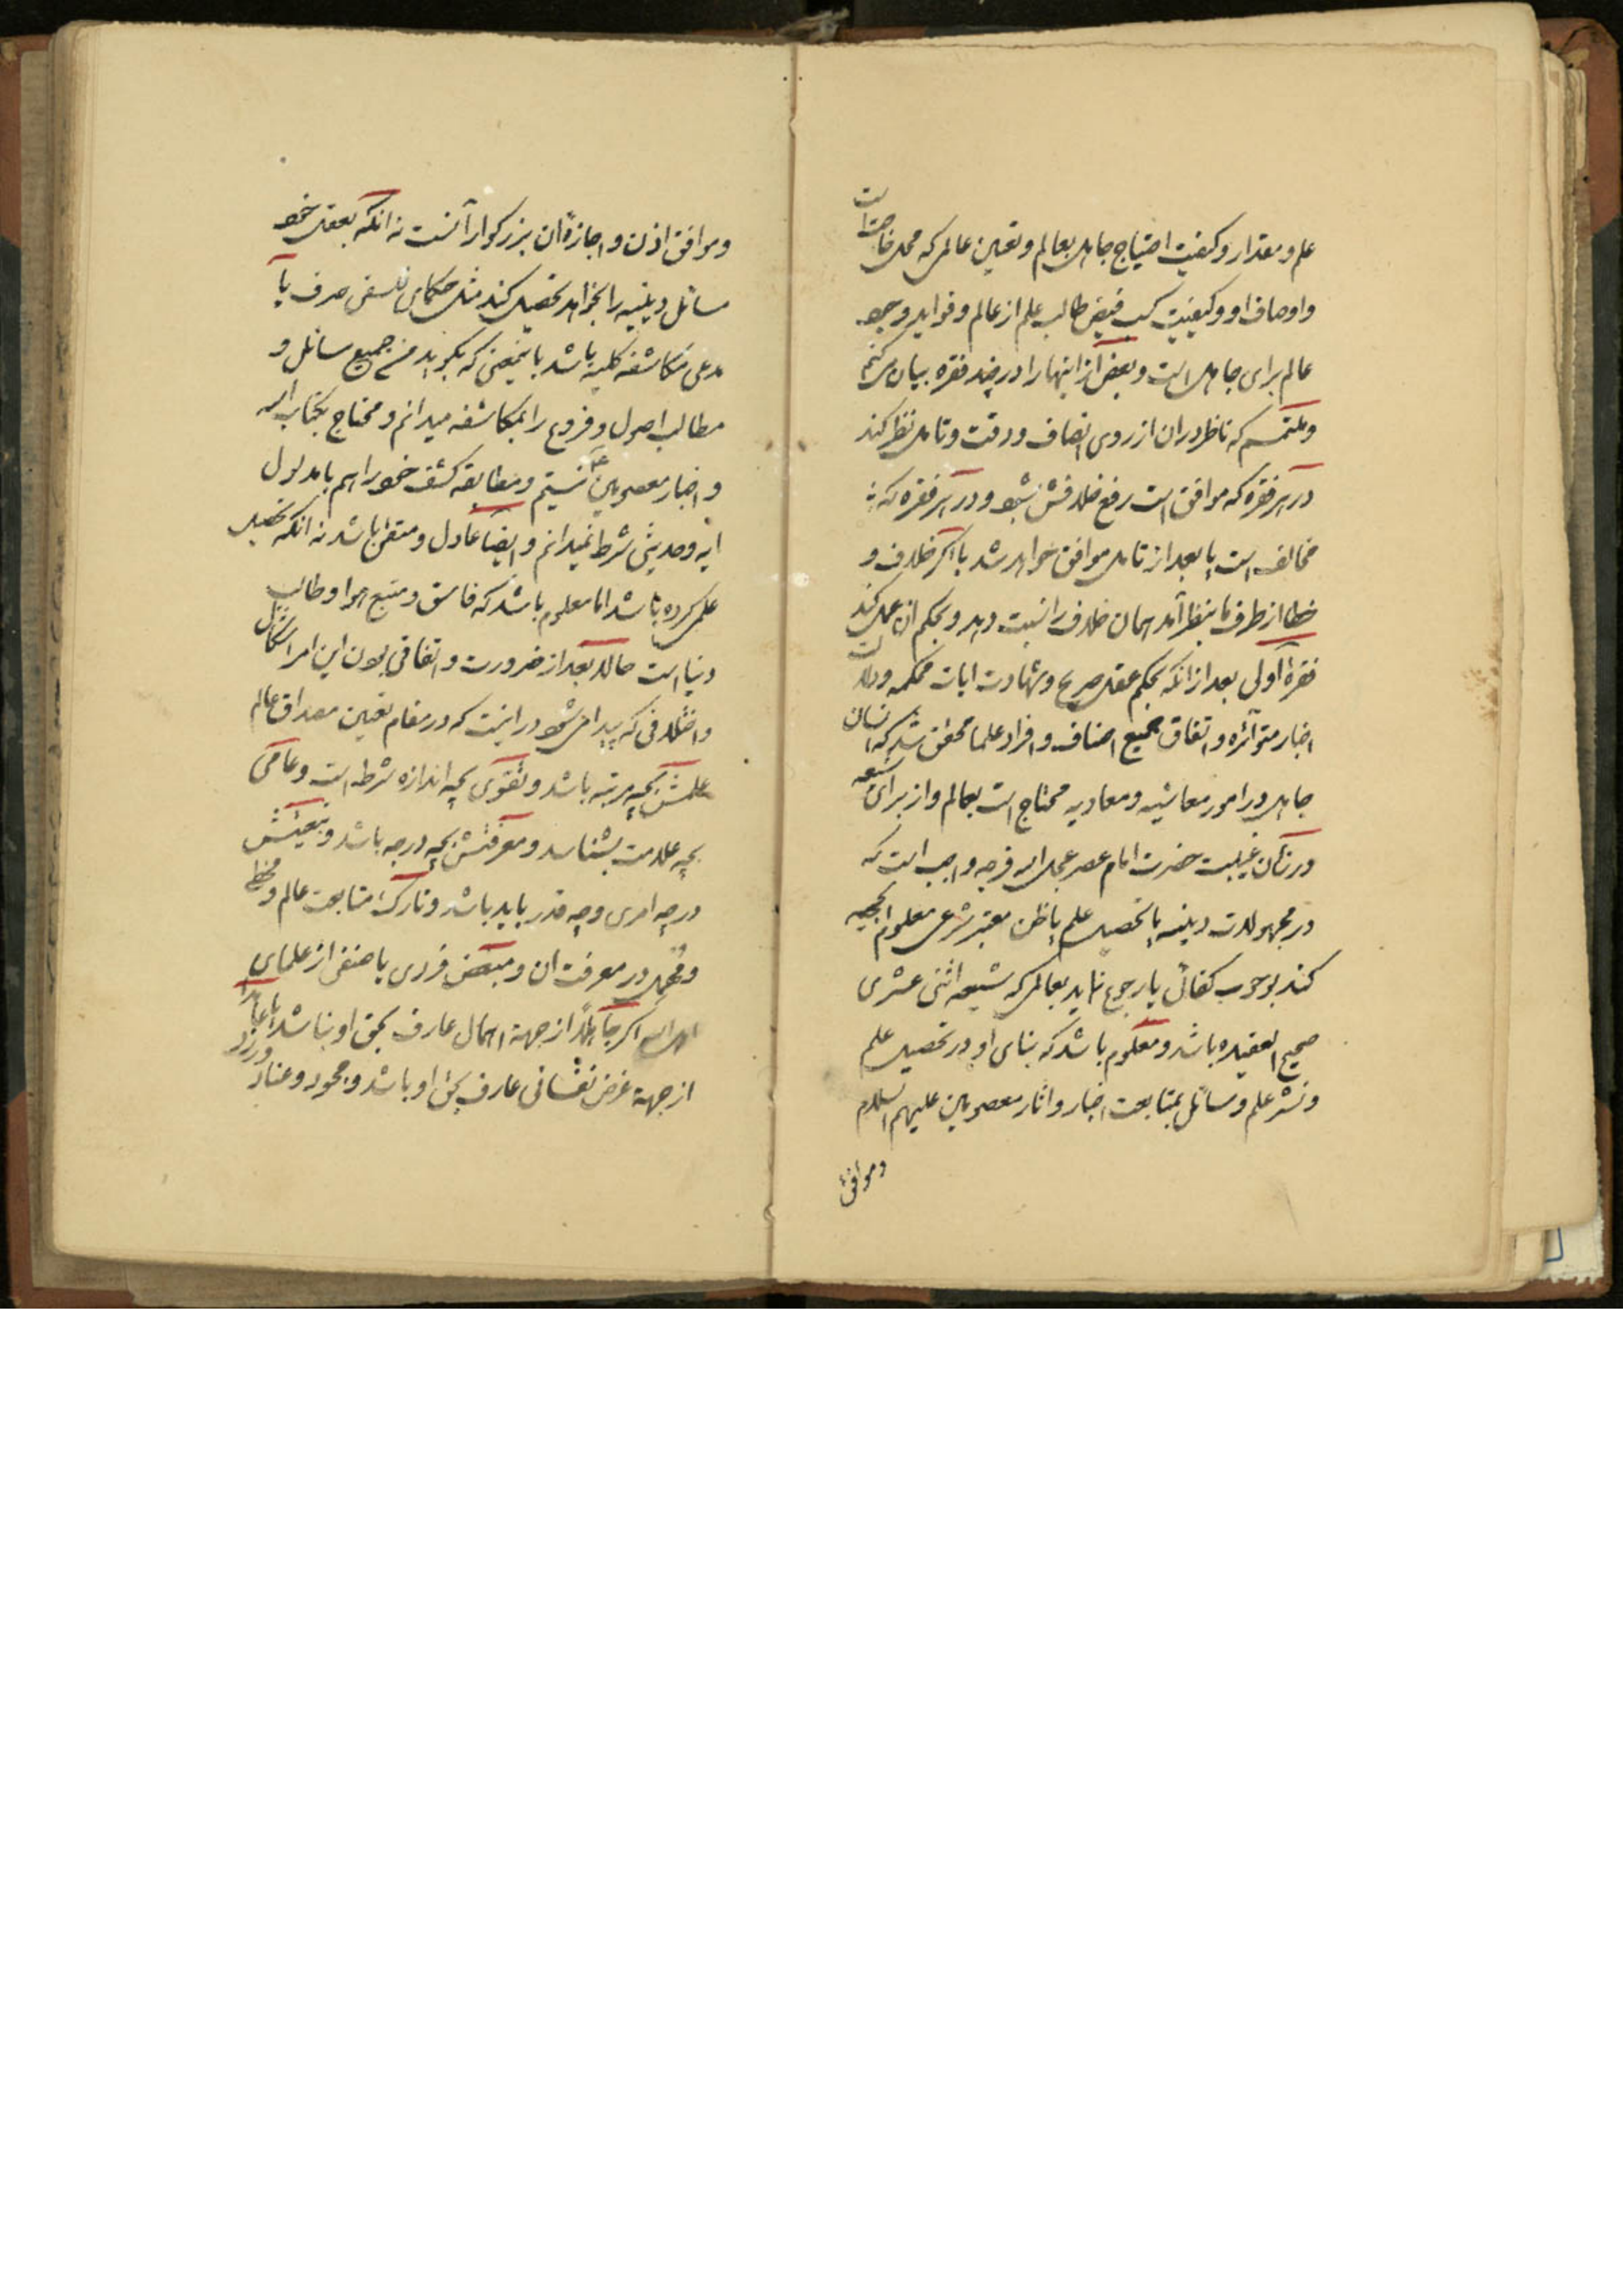 علم و مقدار و کیفیت احتیاج جاهل بعالم و تعیین عالمی که محل حاجت است
و اوصاف او و کیفیت کسب فیض طالب علم از عالم و فواید وجود
عالم برای جاهل است و بعض از اینها را در چند فقره بیان می کنم
و ملتمسم که ناظر در ان از روی انصاف و دقت و تامل نظر کند
در هر فقره که موافق است رفع خلافش شود و در هر فقره که
مخالف است یا بعد از تامل موافق خواهد شد یا اگر خلاف و
خطا از طرف ما بنظر آمد همان خلاف را نسبت دهد و بحکم ان عمل کند
فقره اولی بعد از انکه بحکم عقل صریح و شهادت ایات محکمه و دلالت
اخبار متواتره و اتفاق جمیع اصناف و افراد علما محقق شد که انسان
جاهل در امور معاشیه و معادیه محتاج است بعالم و از برای شیعه
در زمان غیبت حضرت امام عصر عجل الله فرجه واجب است که
در مجهولات دینیه یا تحصیل علم یا ظن معتبر شرعی معلوم الحجیه
کند بوجوب کفائی یا رجوع نماید بعالمی که شیعه اثنی عشری
صحیح العقیده باشد و معلوم باشد که بنای او در تحصیل علم
و نشر علم و مسائل بمتابعت اخبار و اثار معصومین علیهم السلام
و موافق
و موافق اذن و اجازهٔ ان بزرگوارانست نه انکه بعقل خود
مسائل دینیه را بخواهد تحصیل کند مثل حکمای فلسفی صرف یا
مدعی مکاشفه کلیه باشد باینمعنی که بگوید من جمیع مسائل و
مطالب اصول و فروع را بمکاشفه میدانم و محتاج بکتاب الله
و اخبار معصومین ع نیستم و مطابقه کشف خود را هم با مدلول
ایه و حدیثی شرط نمیدانم و ایضا عادل و متقی باشد نه انکه تحصیل
علمی کرده باشد اما معلوم باشد که فاسق و متبع هوا و طالب
دنیا است حالا بعد از ضرورت و اتفاقی بودن این امر اشکال
و اختلافی که پیدا می شود در اینست که در مقام تعیین مصداق عالم
علمش بچه مرتبه باشد و تقوی بچه اندازه شرط است و عامی
بچه علامت بشناسد و معرفتش بچه درجه باشد و تبعیتش
در چه امری و چه قدر باید باشد و تارک متابعت عالم و مخطی
و مهمل در معرفت ان و مبغض فردی یا صنفی از علمای
اگر جاهلاً از جهة اهمال عارف بحق او نباشد یا عامداً
از جهة غرض نفسانی عارف بحق او باشد و جحود و عناد ورزد